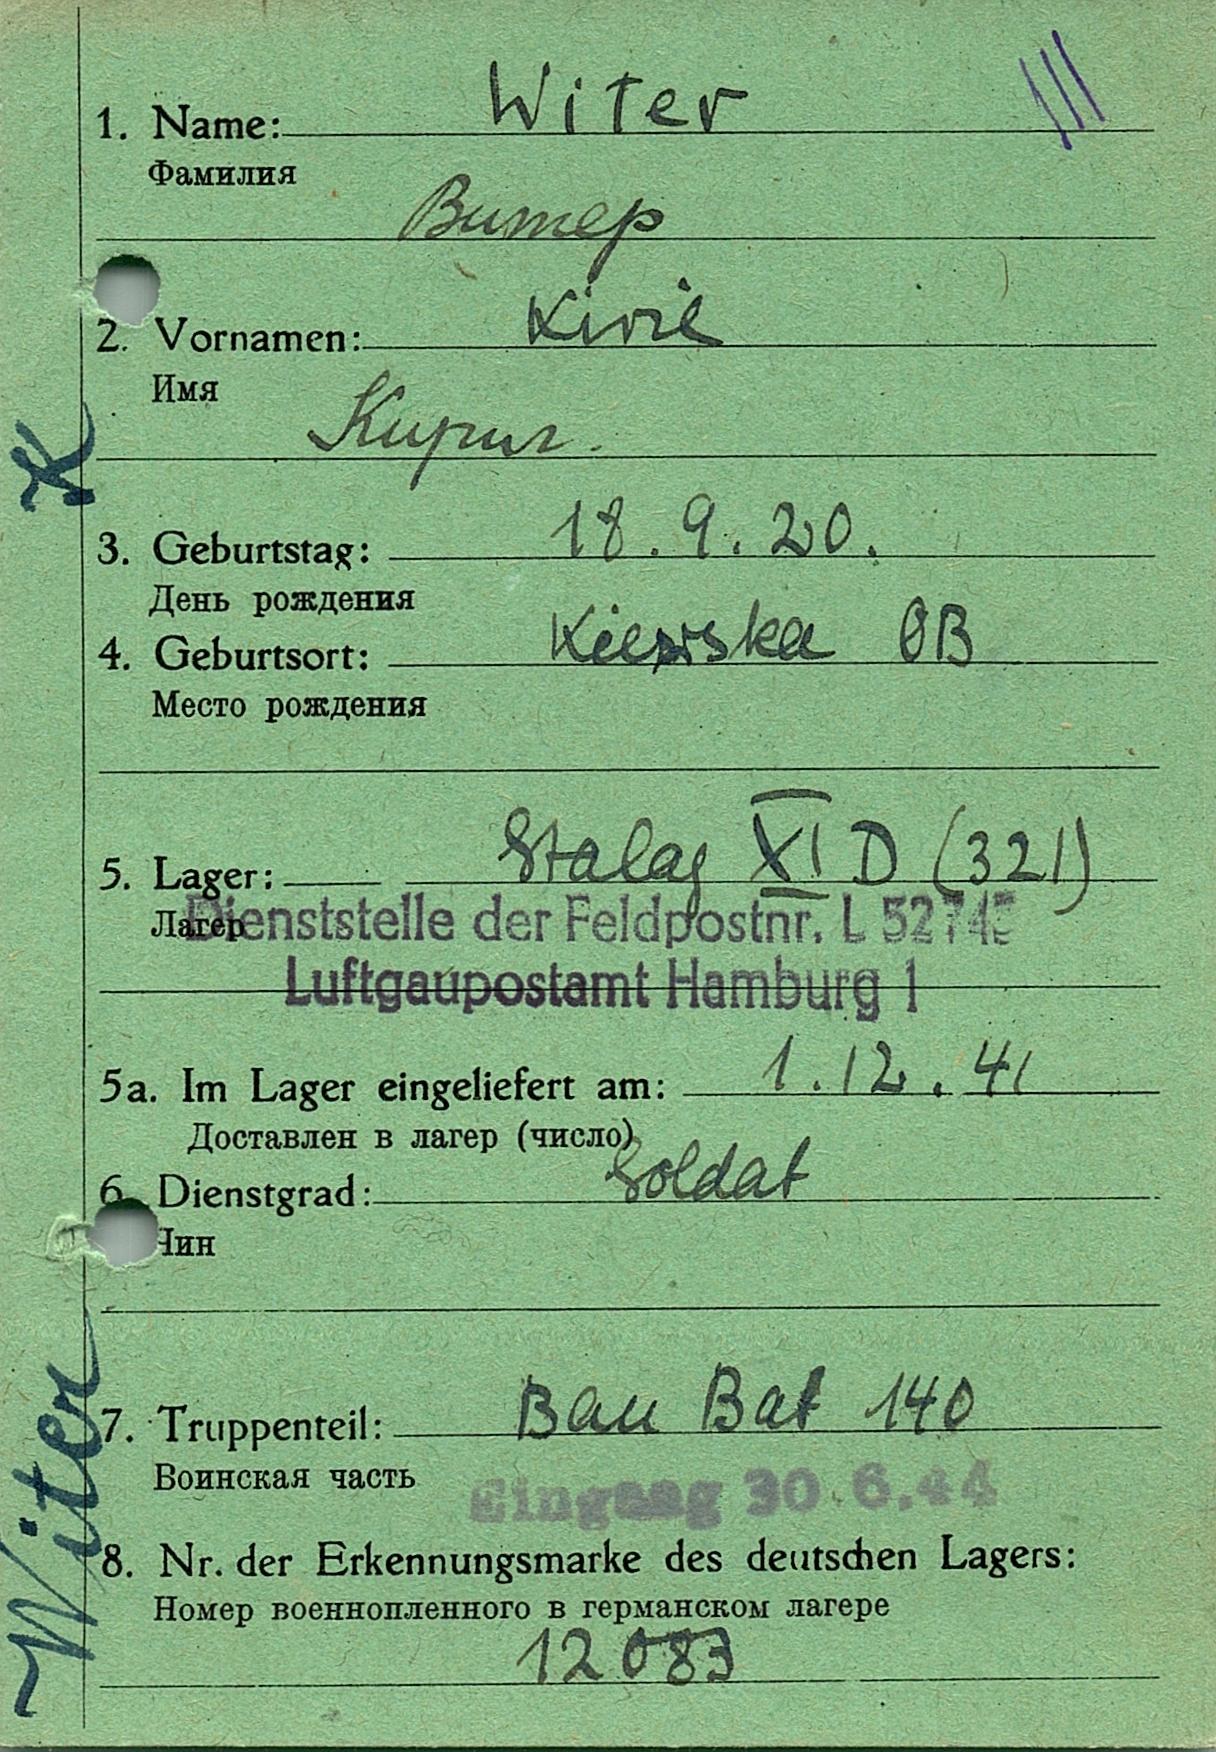 1. Name: Witer
Фамилия
Витер
2. Vornamen: Kiril
Имя
Кирил.
3. Geburtstag: 18.9.20.
День рождения
4. Geburtsort: Kiewska OB
Место рождения
5. Lager: Stalag XI D (321)
Лагер
Dienststelle der Feldpostnr. L 52745
Luftgaupostamt Hamburg 1
5a. Im Lager eingeliefert am: 1.12.41
Доставлен в лагер (число)
6. Dienstgrad: Soldat
Чин
7. Truppenteil: Bau Bat 140
Воинская часть
Eingang 30.6.44
8. Nr. der Erkennungsmarke des deutschen Lagers:
Номер военнопленного в германском лагере
12083
Witer K